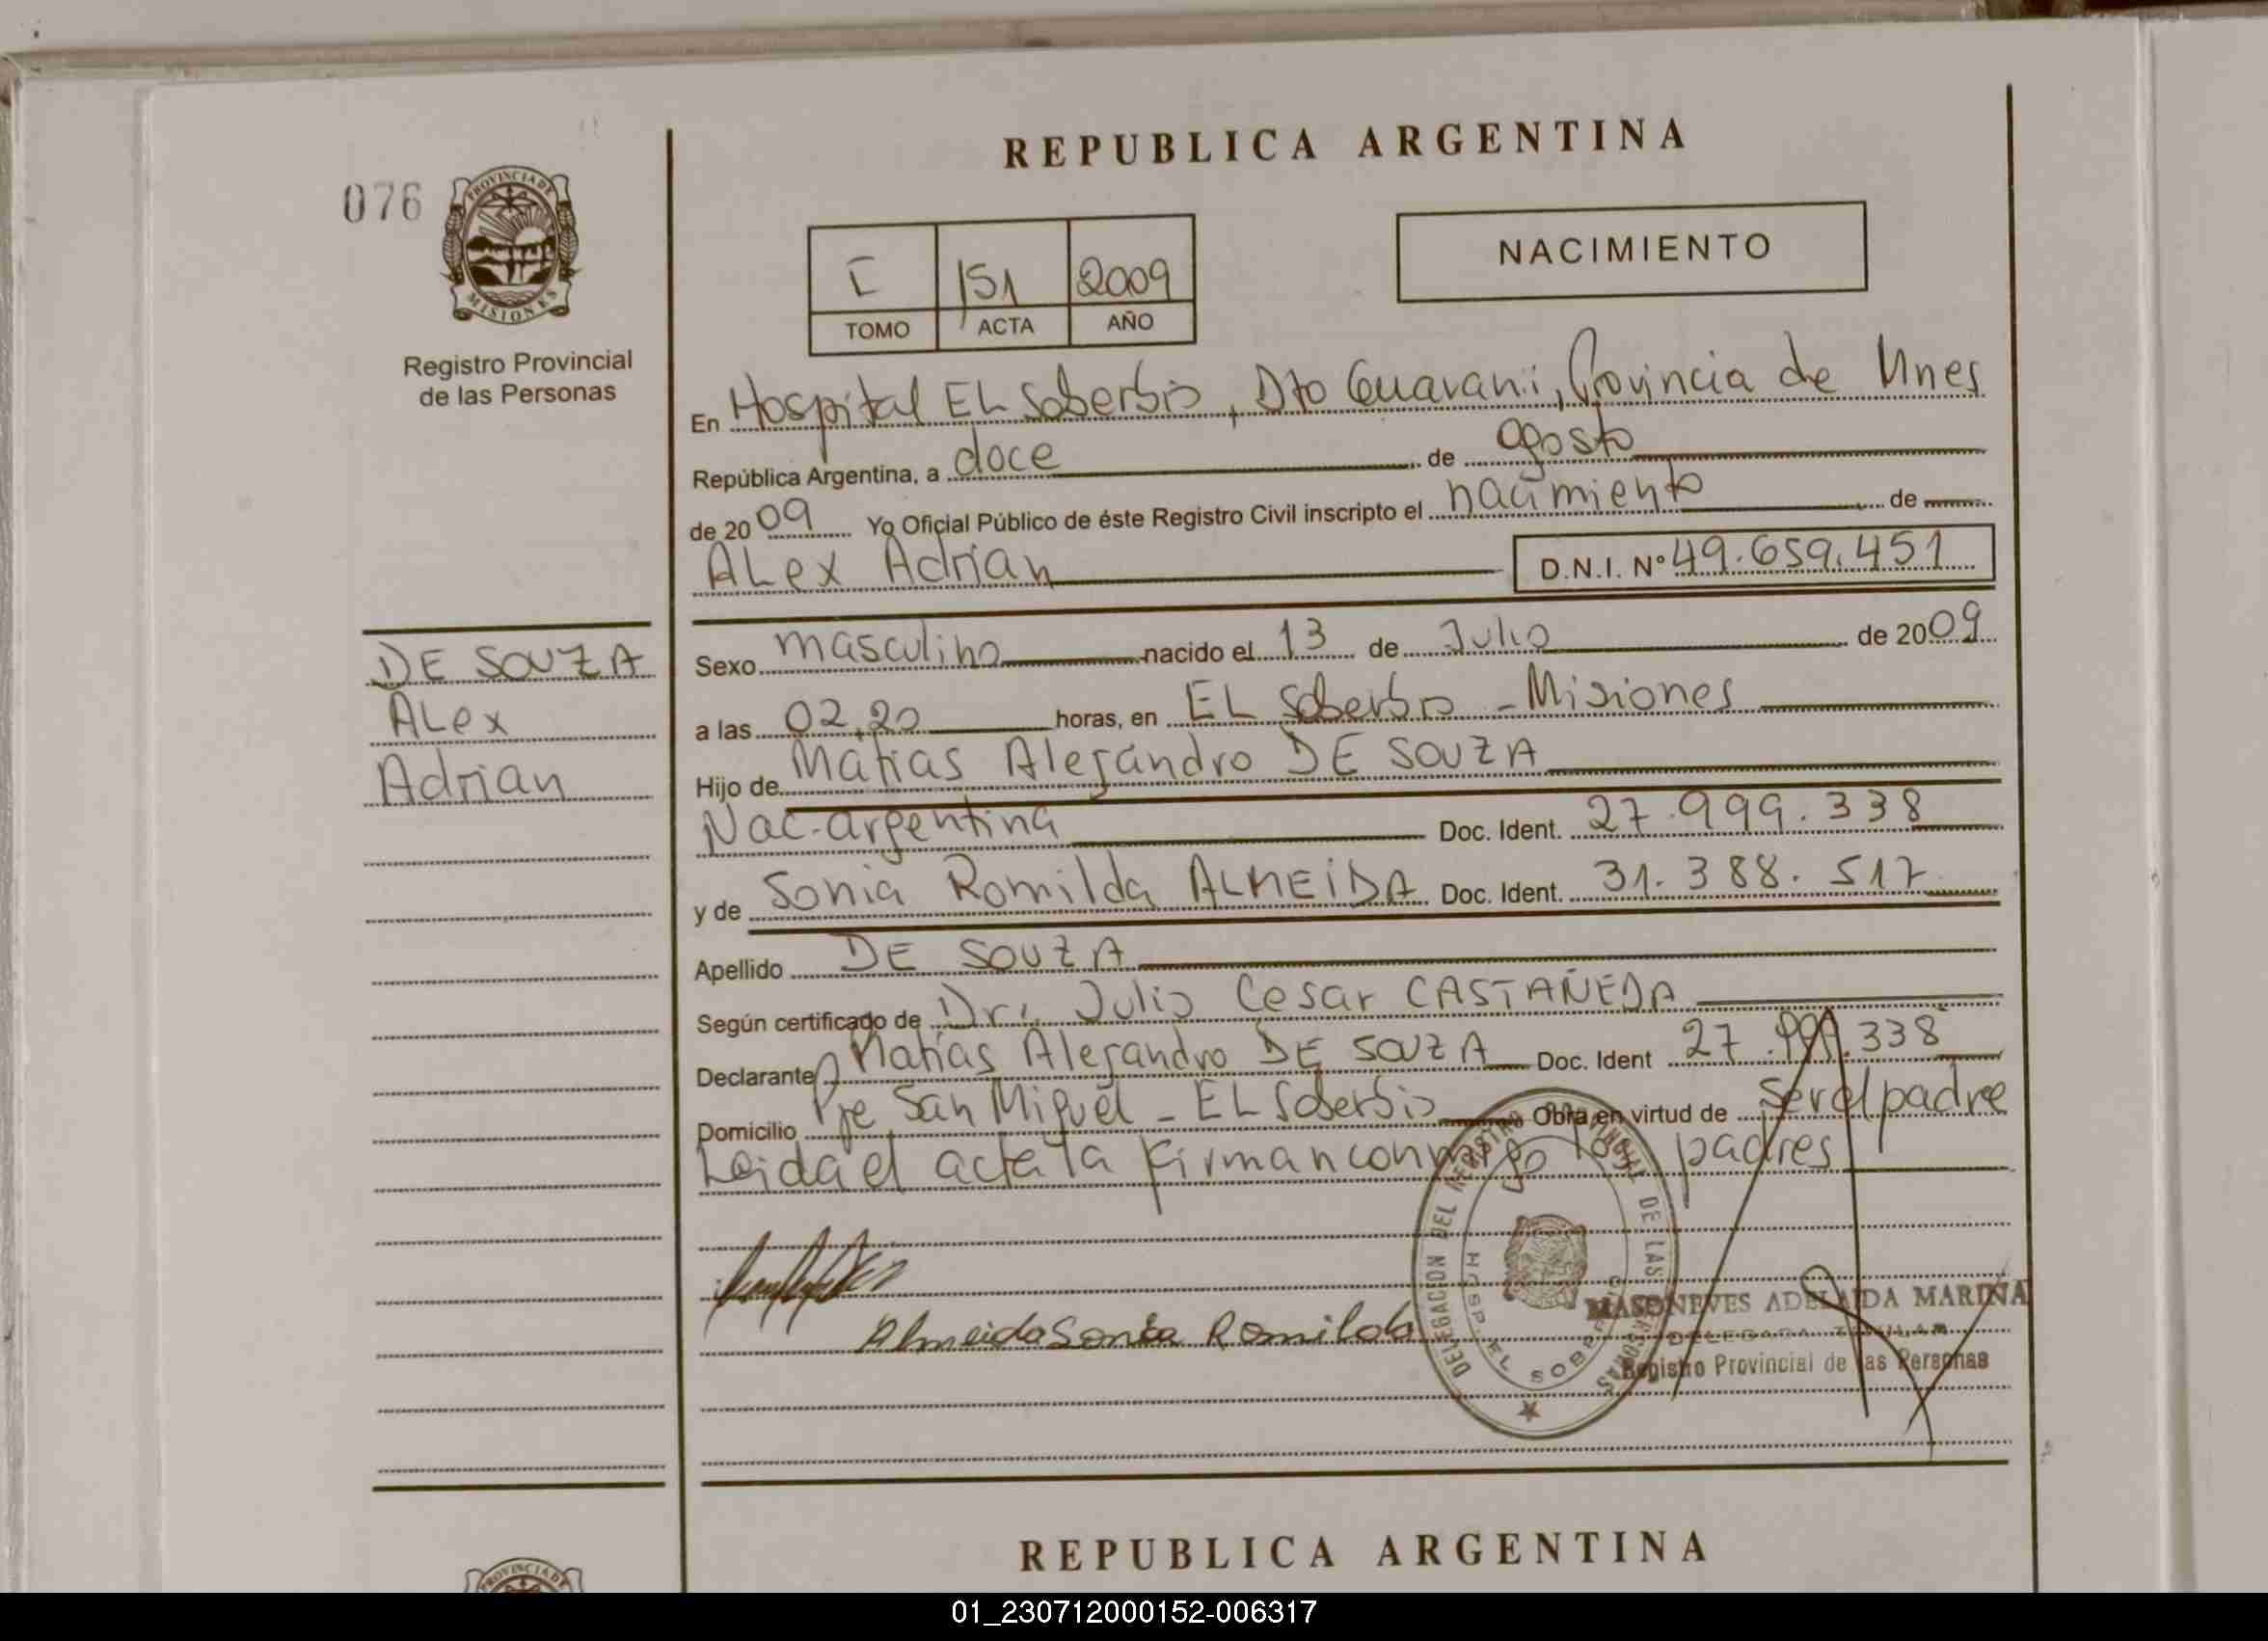 REPUBLICA ARGENTINA
076
PROVINCIA DE
MISIONES
Registro Provincial
de las Personas
I 151 2009
TOMO ACTA AÑO
NACIMIENTO
En Hospital EL Soberbio, Dto Guaraní, Provincia de Mnes
República Argentina, a doce de agosto
de 2009 Yo Oficial Público de éste Registro Civil inscripto el nacimiento de
ALex Adrian D.N.I. Nº 49.659.451
DE SOUZA
ALex
Adrian
Sexo masculino nacido el 13 de Julio de 2009
a las 02,20 horas, en EL Soberbio - Misiones
Hijo de Matias Alejandro DE SOUZA
Nac. argentina Doc. Ident. 27.999.338
y de Sonia Romilda ALMEIDA Doc. Ident. 31.388.517
Apellido DE SOUZA
Según certificado de Dr. Julio Cesar CASTAÑEDA
Declarante Matias Alejandro DE SOUZA Doc. Ident 27.999.338
Domicilio Pje San Miguel - EL Soberbio Obra en virtud de ser el padre
Leida el acta la firman conmigo los padres
Almeida Sonia Romilda
DELEGACION DEL REGISTRO PROVINCIAL DE LAS PERSONAS
HOSP. EL SOBERBIO
MASONEVES ADELAIDA MARINA
DELEGADA TITULAR
Registro Provincial de las Personas
REPUBLICA ARGENTINA
PROVINCIA DE
01_230712000152-006317